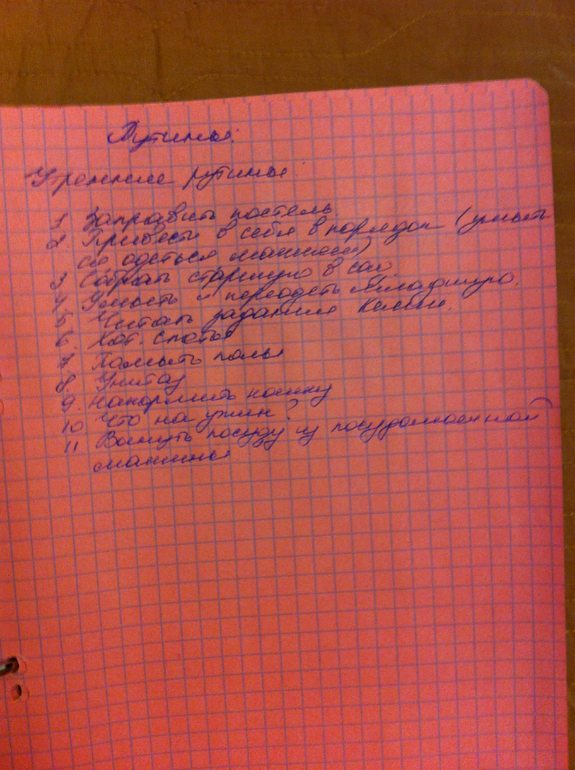 Рутины:
Утренние рутины:
1 Заправить постель
2 Привести себя в порядок (умыть
ся одеться макияж)
3 Собрать старшую в сад.
4 Умыть и переодеть младшую.
5 Читать задания Келли.
6. Хот. споты
7 Помыть полы
8 Унитаз
9. Накормить кошку
10 Что на ужин?
11 Вынуть посуду из посудомоечной
машины